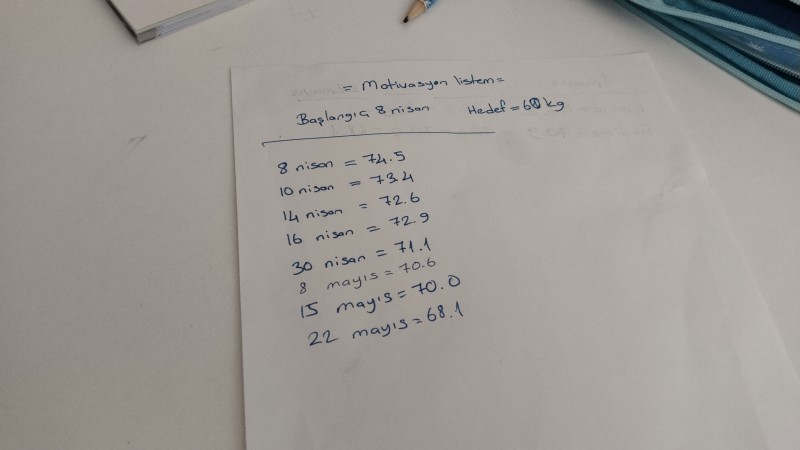 = Motivasyon listem =
Başlangıç 8 nisan Hedef = 60 kg
8 nisan = 74.5
10 nisan = 73.4
14 nisan = 72.6
16 nisan = 72.9
30 nisan = 71.1
8 mayıs = 70.6
15 mayıs = 70.0
22 mayıs = 68.1